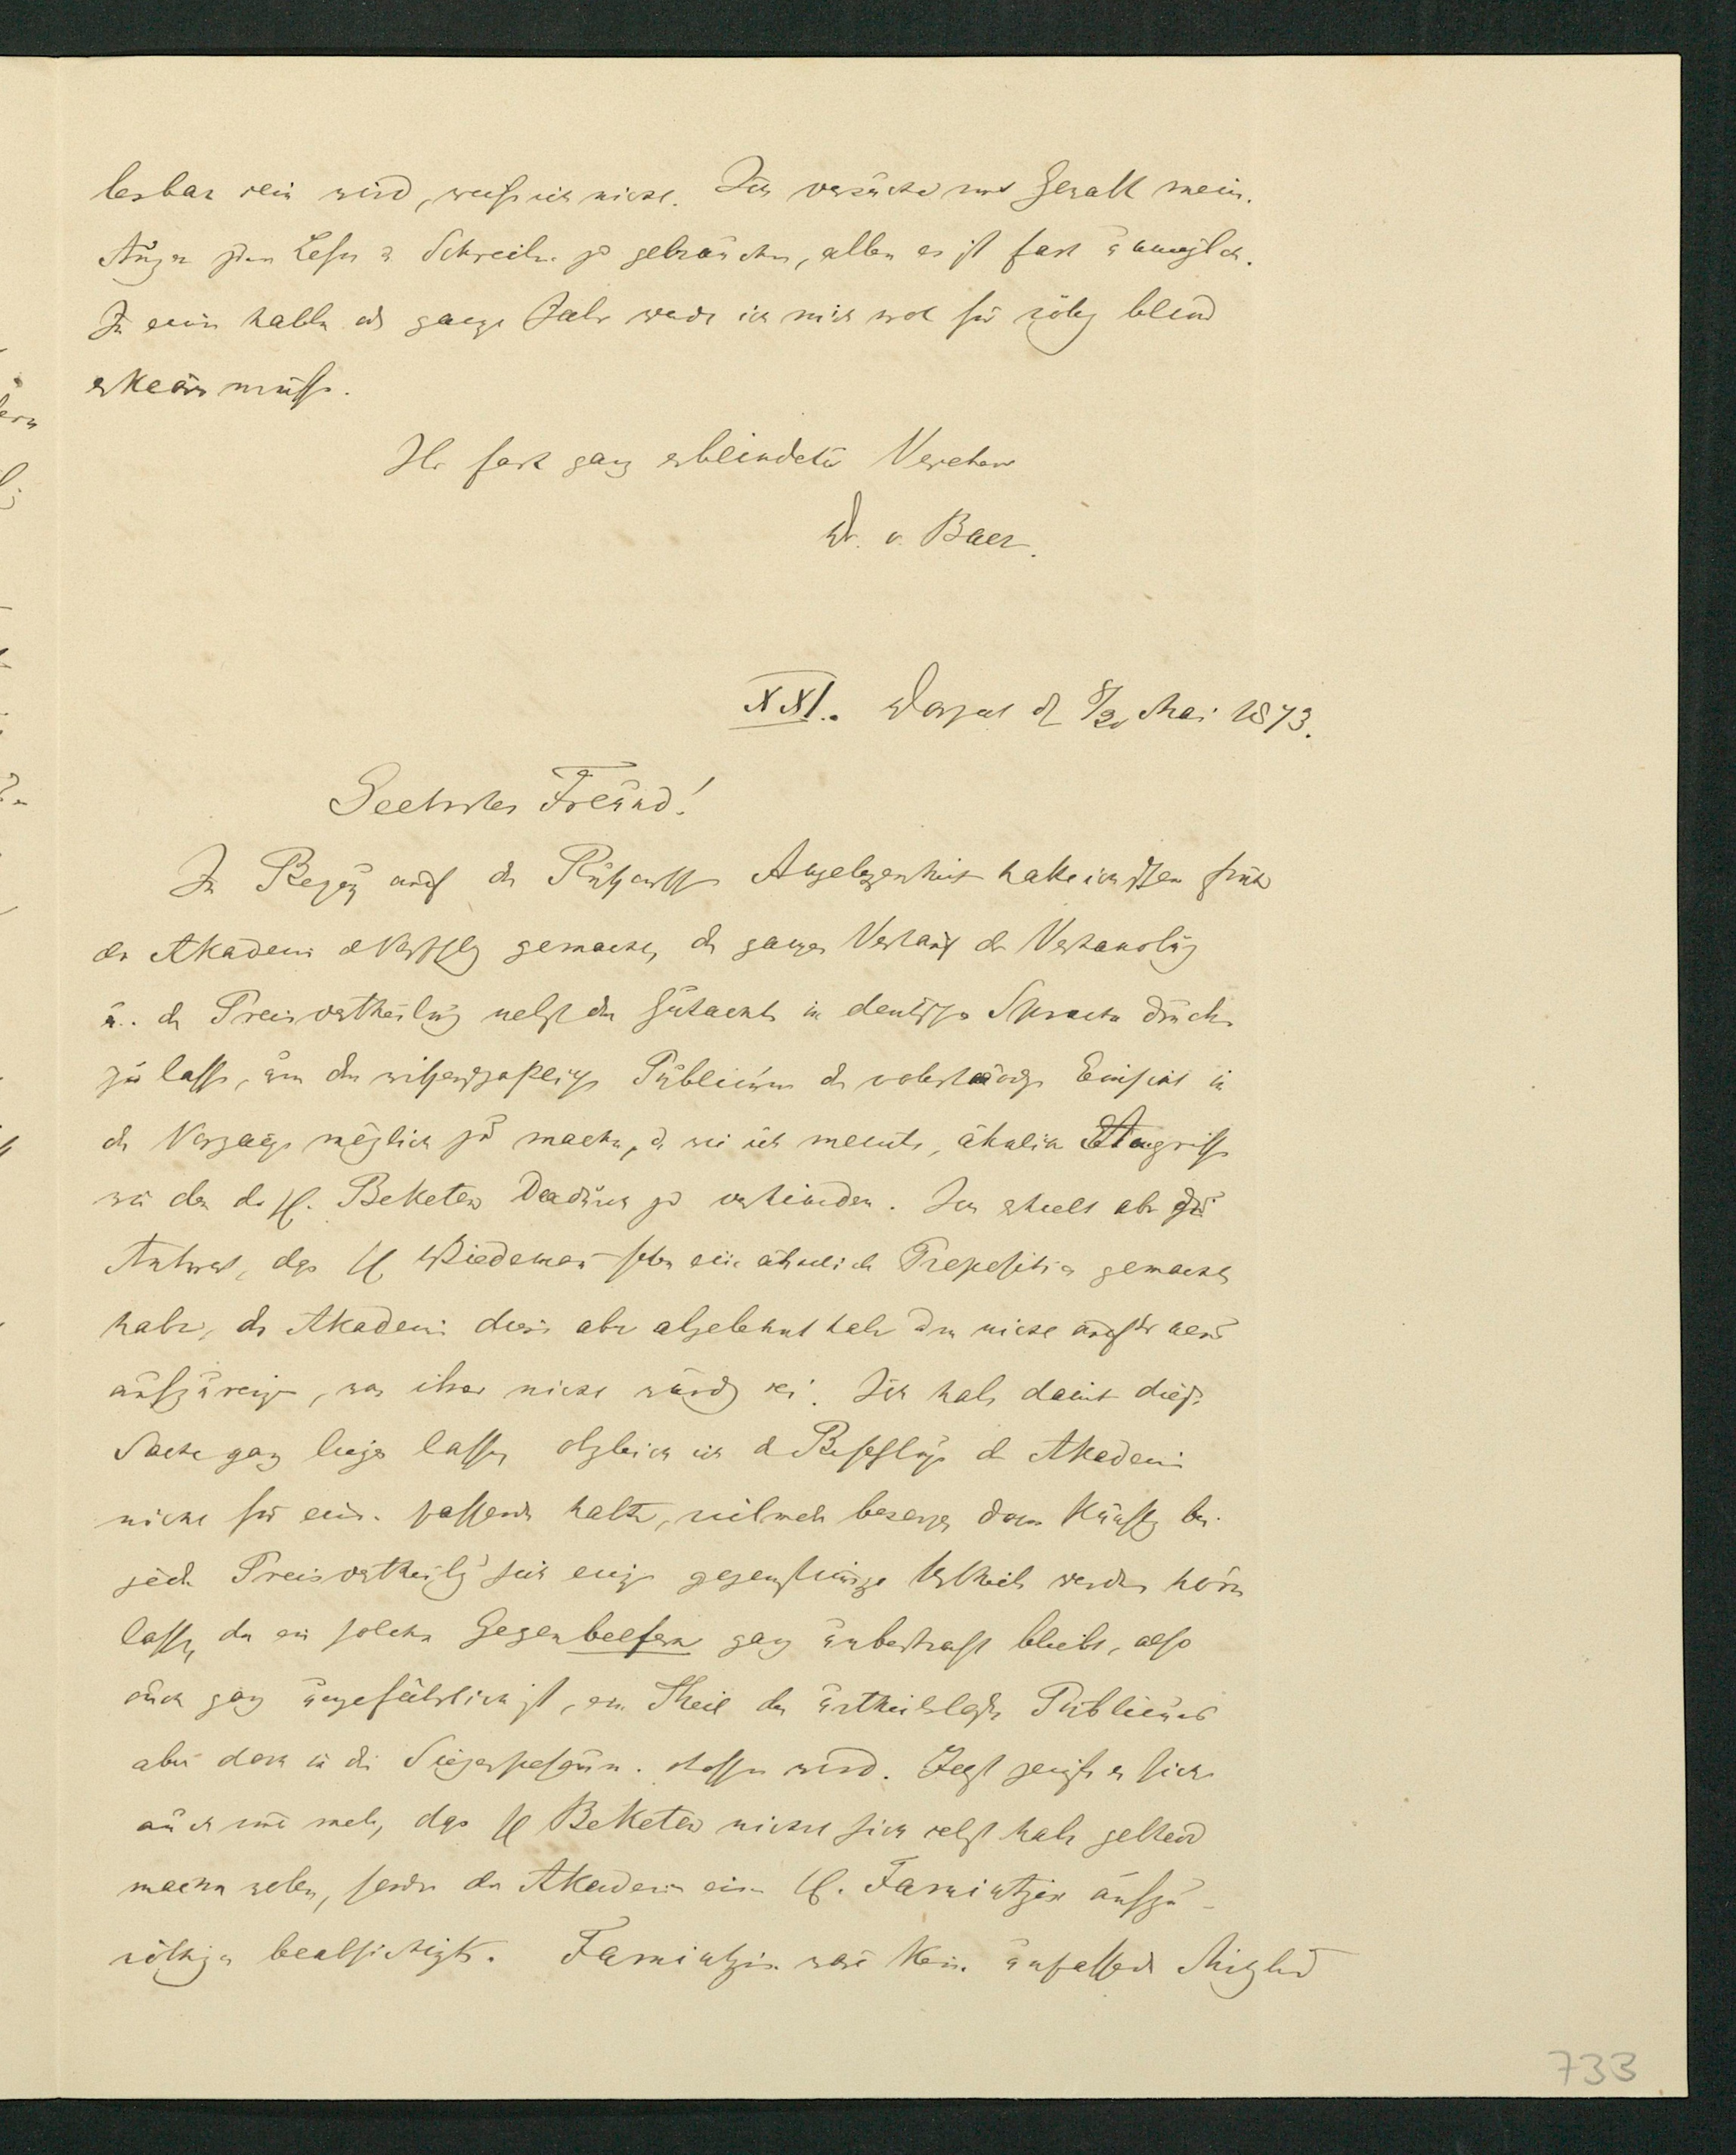 lesbar sein wird, weiß ich nicht. Ich versuche mit Gewalt mein.
Augen zum Lesen u Schreiben zu gebrauchen, allein es ist fast unmöglich.
In einem halben od ganzen Jahr werde ich mich wol für völlig blind
erklären müssen.
Ihr fast ganz erblindeter Verehrer
Dr. v. Baer.
XXI. Dorpat d 8/20 Mai 1873.
Geehrter Freund!
In Bezug auf die Angelegenheit hatte ich schon früher
der Akademie d Vorschlag gemacht, den ganzen Verlauf der Verhandlung
u. der Preisvertheilung nebst den Gutachten in deutscher Sprache drucken
zu lassen, um dem wissenschaftlichen Publicum die vollständige Einsicht in
die Vorgänge möglich zu machen, u wie ich meinte, ähnliche Angriffe
wie den des H. Beketow dadurch zu verhindern. Ich erhielt aber die
Antwort, dass H Wiedemann schon eine ähnliche Proposition gemacht
habe, die Akademie diese aber abgelehnt habe um nicht auf etwas
was ihrer nicht würdig sei. Ich habe damit diese
Sache ganz liegen lassen, obgleich ich d Beschluss d Akademie
nicht für einen passenden halte, vielmehr besorge dass künftig bei
jeder Preisvertheilung sich einige gegenstimmige Urtheile werden hören
lassen, da ein solches Gegenbelfern ganz unbestraft bleibt, also
auch ganz ungefährlich ist, ein Theil des urtheilslosen Publicums
aber doch in die stossen wird. Jetzt zeigt es sich
auch immer mehr, dass H Beketow nicht sich selbst habe geltend
machen wollen, sondern der Akademie einen H. Famintzin aufzu-
nöthigen beabsichtigte. Famintzin wäre kein unpassendes Mitglied
733